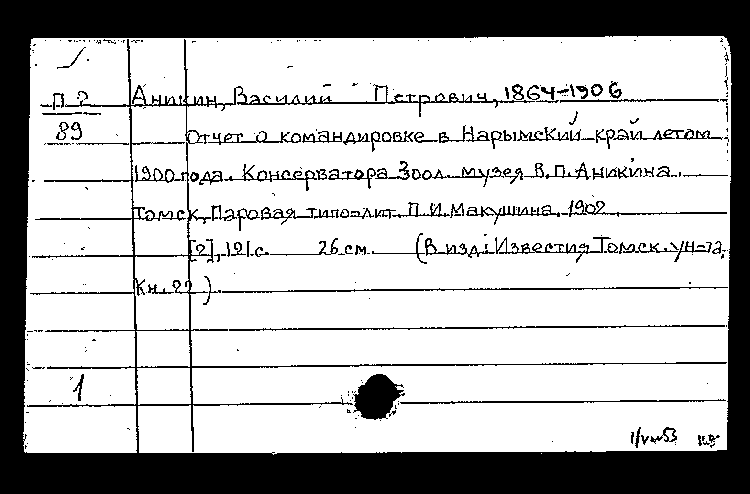 П 2
89
Аникин, Василий Петрович, 1864-1906
Отчет о командировке в Нарымский край летом
1900 года. Консерватора Зоол. музея В.П. Аникина.
Томск, Паровая типо-лит. П.И. Макушина, 1902.
[2], 121 с. 26 см. (В изд: Известия Томск. ун-та,
Кн. 22).
1